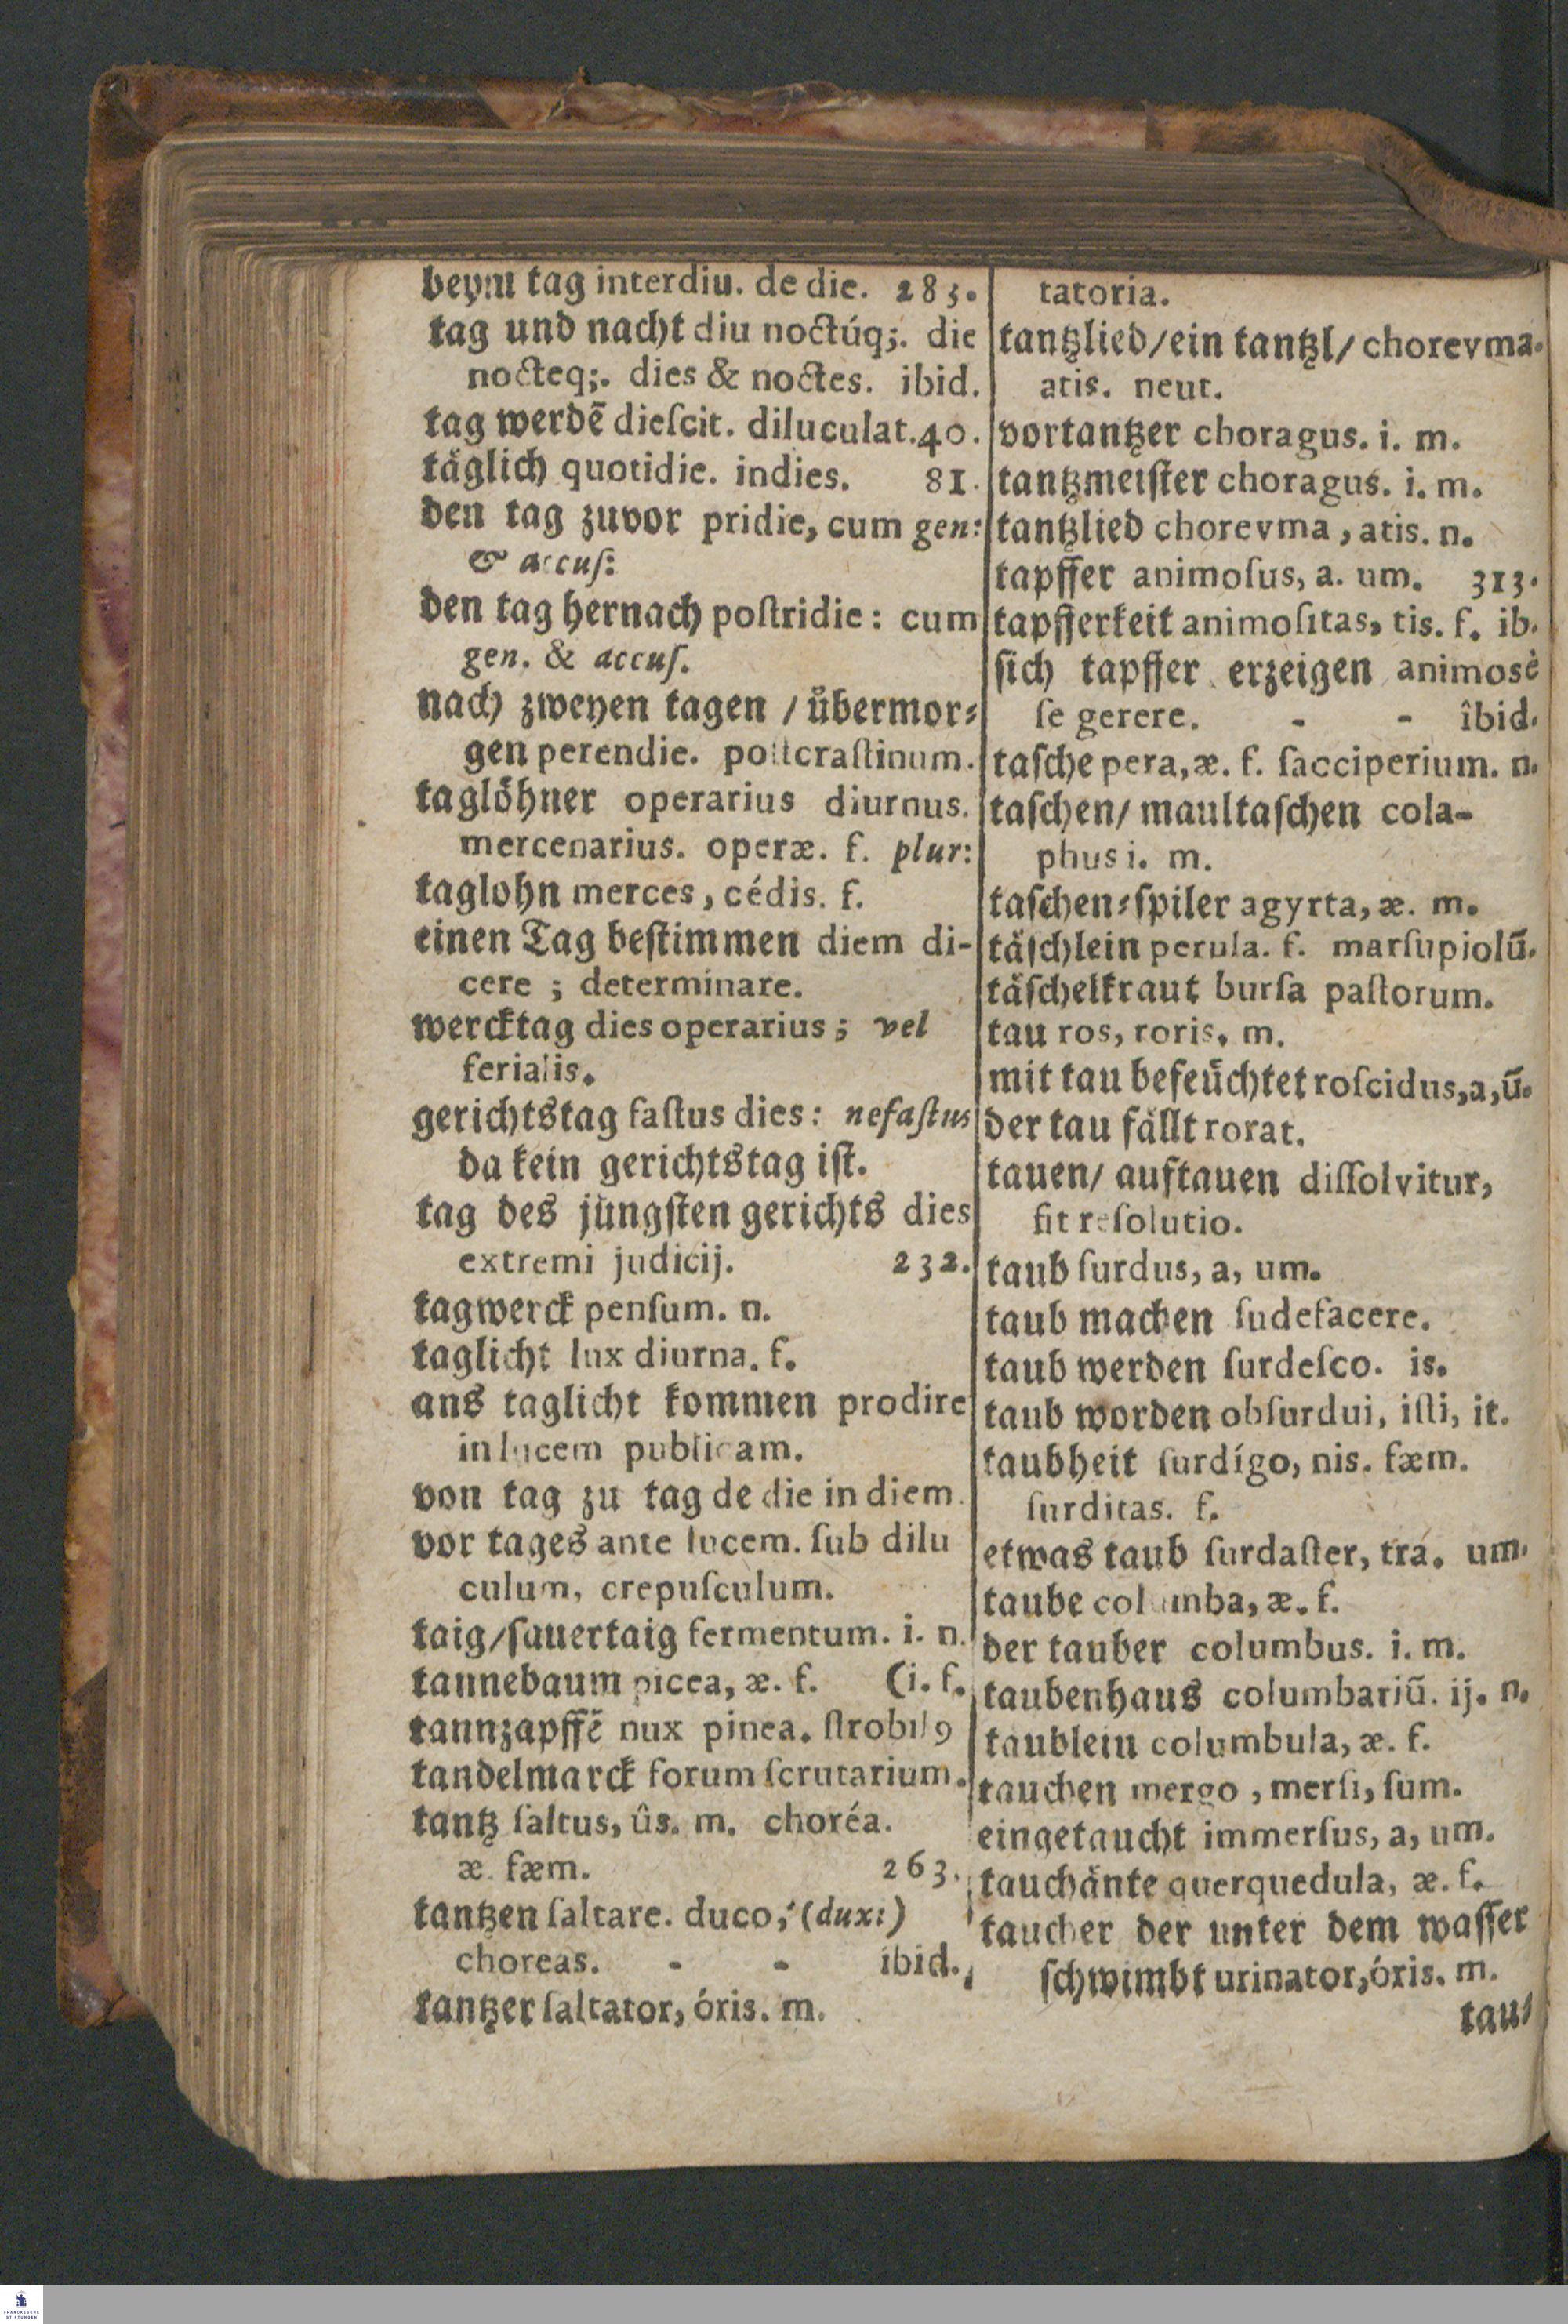 beym tag interdiu. de die. 283.
tag und nacht diu noctúq;. die
nocteq;. dies & noctes. ibid.
tag werdē dieſcit. diluculat. 40.
täglich quotidie. indies. 81.
den tag zuvor pridie, cum gen:
& accuſ:
den tag hernach poſtridie: cum
gen. & accuſ.
nach zweyen tagen / übermor⸗
gen perendie. poſtcraſtinum.
taglöhner operarius diurnus.
mercenarius. operæ. f. plur:
taglohn merces, cédis. f.
einen Tag beſtimmen diem di-
cere ; determinare.
wercktag dies operarius ; vel
ferialis.
gerichtstag faſtus dies: nefaſtus
da kein gerichtstag iſt.
tag des jüngſten gerichts dies
extremi judicij. 232.
tagwerck penſum. n.
taglicht lux diurna. f.
ans taglicht kommen prodire
in lucem publicam.
von tag zu tag de die in diem.
vor tages ante lucem. ſub dilu
culum, crepuſculum.
taig/ſauertaig fermentum. i. n.
tannebaum picea, æ. f. (i. f.
tannzapffē nux pinea. ſtrobilꝰ
tandelmarck forum ſcrutarium.
tantz ſaltus, ûs. m. choréa.
æ. fæm. 263.
tantzen ſaltare. duco, (dux:)
choreas. - - ibid.
tantzer ſaltator, óris. m.
tatoria.
tantzlied/ein tantzl/ chorevma.
atis. neut.
vortantzer choragus. i. m.
tantzmeiſter choragus. i. m.
tantzlied chorevma, atis. n.
tapffer animoſus, a. um. 313.
tapfferkeit animoſitas, tis. f. ib.
ſich tapffer erzeigen animosè
ſe gerere. - - îbid.
taſche pera, æ. f. ſacciperium. n.
taſchen/ maultaſchen cola-
phus i. m.
taſchen⸗ſpiler agyrta, æ. m.
täſchlein perula. f. marſupiolū.
täſchelkraut burſa paſtorum.
tau ros, roris. m.
mit tau befeüchtet roſcidus, a, ū.
der tau fällt rorat.
tauen/ auftauen diſſolvitur,
fit reſolutio.
taub ſurdus, a, um.
taub machen ſudefacere.
taub werden ſurdeſco. is.
taub worden obſurdui, iſti, it.
taubheit ſurdígo, nis. fæm.
ſurditas. f.
etwas taub ſurdaſter, tra. um.
taube columba, æ. f.
der tauber columbus. i. m.
taubenhaus columbariū. ij. n.
taublein columbula, æ. f.
tauchen mergo, merſi, ſum.
eingetaucht immerſus, a, um.
tauchänte querquedula, æ. f.
taucher der unter dem waſſer
ſchwimbt urinator, óris. m.
tau⸗
FRANCKESCHE
STIFTUNGEN